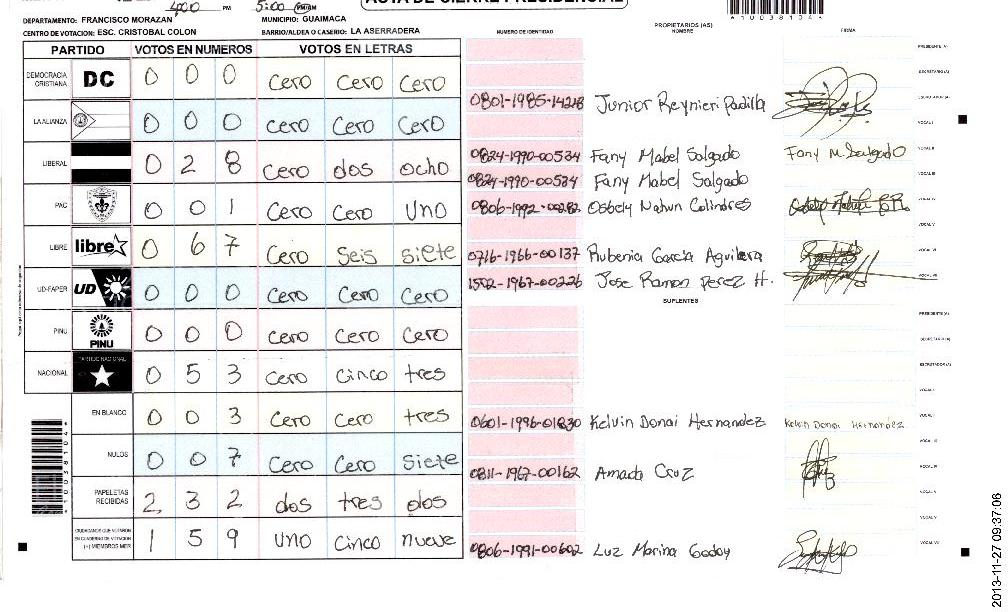 ACTA DE CIERRE PRESIDENCIAL
4:00 PM 5:00 PM/AM
DEPARTAMENTO: FRANCISCO MORAZAN MUNICIPIO: GUAIMACA
CENTRO DE VOTACION: ESC. CRISTOBAL COLON BARRIO/ALDEA O CASERIO: LA ASERRADERA
PARTIDO VOTOS EN NUMEROS VOTOS EN LETRAS
DEMOCRACIA CRISTIANA DC 0 0 0 Cero Cero Cero
LA ALIANZA 0 0 0 Cero Cero Cero
LIBERAL 0 2 8 Cero dos ocho
PAC 0 0 1 Cero Cero Uno
LIBRE libre 0 6 7 Cero Seis Siete
UD-FAPER UD 0 0 0 Cero Cero Cero
PINU PINU 0 0 0 Cero Cero Cero
NACIONAL PARTIDO NACIONAL 0 5 3 Cero Cinco tres
EN BLANCO 0 0 3 Cero Cero tres
NULOS 0 0 7 Cero Cero Siete
PAPELETAS RECIBIDAS 2 3 2 dos tres dos
CIUDADANOS QUE VOTARON EN CUADERNO DE VOTACION (+) MIEMBROS MER 1 5 9 Uno Cinco nueve
NUMERO DE IDENTIDAD PROPIETARIOS (AS) NOMBRE FIRMA
PRESIDENTE (A)
SECRETARIO (A)
0801-1985-14218 Junior Reynieri Padilla ESCRUTADOR (A)
VOCAL I
0824-1990-00534 Fany Mabel Salgado Fany M. Salgado VOCAL II
0824-1990-00534 Fany Mabel Salgado VOCAL III
0806-1992-00282 Osbely Nahun Colindres VOCAL IV
VOCAL V
0716-1966-00137 Rubenia Garcia Aguilera VOCAL VI
1502-1967-00226 Jose Ramon Perez H. VOCAL VII
SUPLENTES
PRESIDENTE (A)
SECRETARIO (A)
ESCRUTADOR (A)
VOCAL I
0601-1996-01830 Kelvin Donai Hernandez Kelvin Donai Hernandez VOCAL II
VOCAL III
0811-1967-00162 Amada Cruz VOCAL IV
VOCAL V
VOCAL VI
0806-1991-00602 Luz Marina Godoy VOCAL VII
*10038104*
*10038104*
2013-11-27 09:37:06